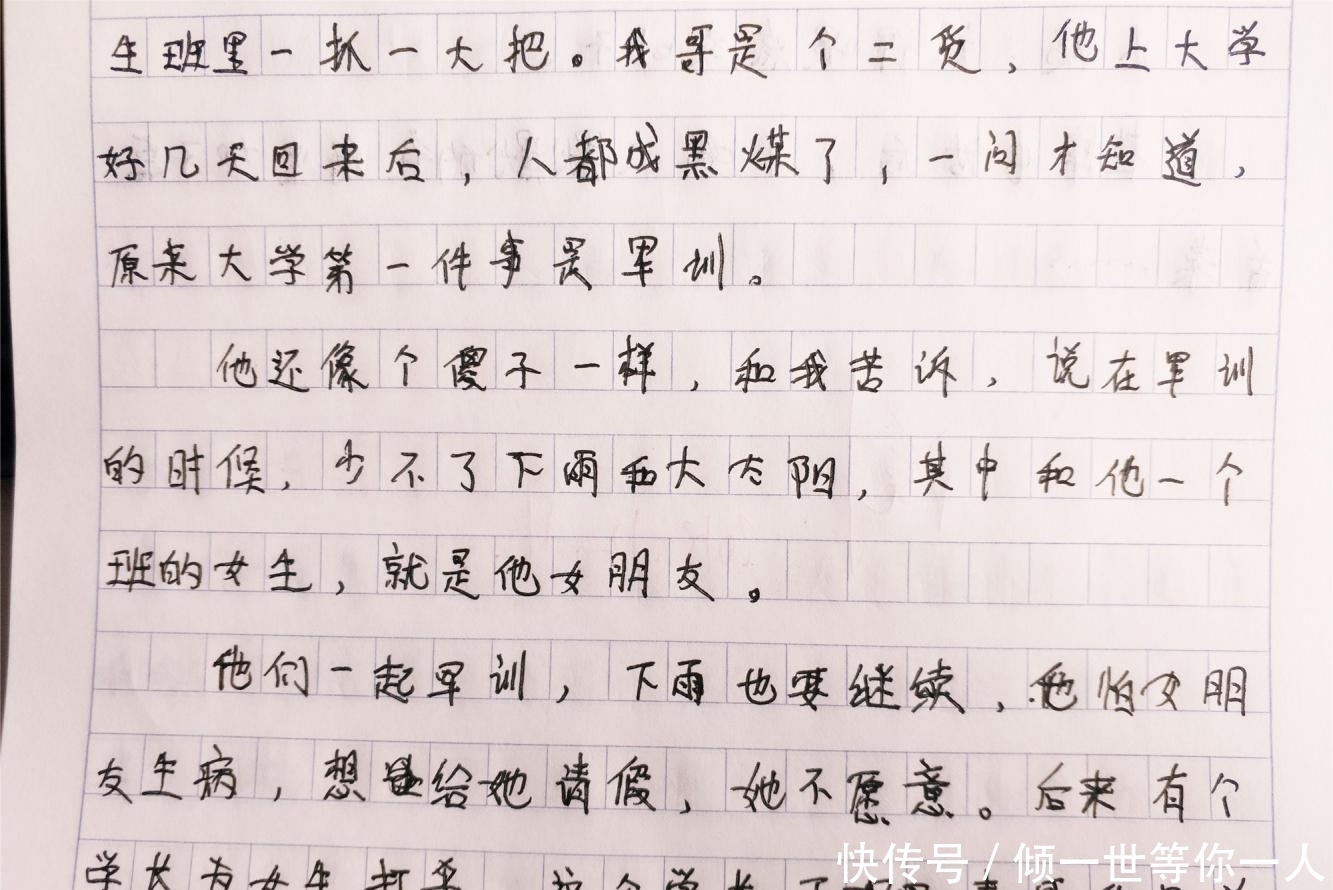 生班里一抓一大把。我哥是个二货，他上大学
好几天回来后，人都成黑煤了，一问才知道，
原来大学第一件事是军训。
他还像个傻子一样，和我苦诉，说在军训
的时候，少不了下雨和大太阳，其中和他一个
班的女生，就是他女朋友。
他们一起军训，下雨也要继续，他怕女朋
友生病，想给她请假，她不愿意。后来有个
学长为女生打伞
快传号/倾一世等你一人